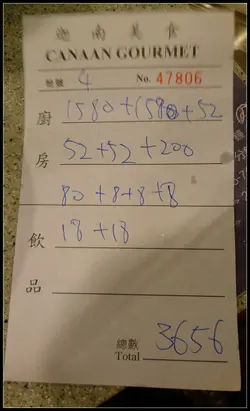 迦南美食
CANAAN GOURMET
枱號 4 No. 47806
廚 1580+1580+52
房 52+52+200
80+8+8+8
飲 18+18
品
總數
Total 3656